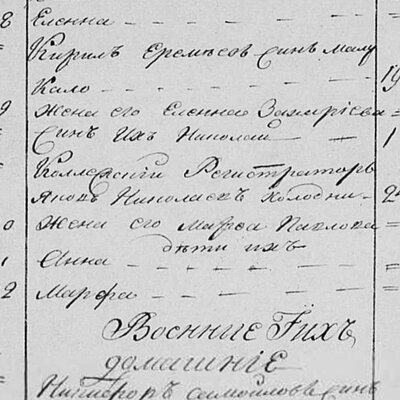 8 Еленна
Кирилъ Еремѣевъ Синъ Малу
Кало 19
9 Жена его Еленна Захарїева
Синъ Ихъ Николай 1
Коллежскїй Регистраторъ
Яковъ Николаевъ Холодни 2
0 Жена его Марѳа Павлова
дѣти ихъ
1 Анна
2 Марфа
Военние Їихъ
домашнїе
Никифоръ Самойловъ синъ